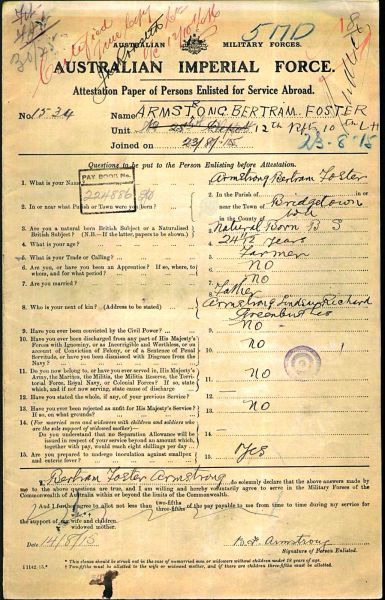 5 MD
Certified
True Copy
12/10/16
AUSTRALIAN MILITARY FORCES.
AUSTRALIAN IMPERIAL FORCE.
Attestation Paper of Persons Enlisted for Service Abroad.
No. 1534 Name ARMSTRONG. BERTRAM. FOSTER
Unit 12th Rft 10th L H
Joined on 23/8/15 23-8-15
Questions to be put to the Person Enlisting before Attestation.
PAY BOOK No.
1. What is your Name? 1. Armstrong Bertram Foster
2. In or near what Parish or Town were you Born? 2. In the Parish of in or
near the Town of Bridgetown
in the County of W A
3. Are you a natural born British Subject or a Naturalised British Subject? (N.B.—If the latter, papers to be shown.) 3. Natural Born B S
4. What is your age? 4. years
5. What is your Trade or Calling? 5. Farmer
6. Are you, or have you been an Apprentice? If so, where, to whom, and for what period? 6. NO
7. Are you married? 7. NO
8. Who is your next of kin? (Address to be stated) 8. Father
Armstrong Lindsay Richard
Greenbushes
9. Have you ever been convicted by the Civil Power? 9. NO
10. Have you ever been discharged from any part of His Majesty's Forces with Ignominy, or as Incorrigible and Worthless, or on account of Conviction of Felony, or of a Sentence of Penal Servitude, or have you been dismissed with Disgrace from the Navy? 10. NO
11. Do you now belong to, or have you ever served in, His Majesty's Army, the Marines, the Militia, the Militia Reserve, the Territorial Force, Royal Navy, or Colonial Forces? If so, state which, and if not now serving, state cause of discharge 11. NO
12. Have you stated the whole, if any, of your previous Service? 12.
13. Have you ever been rejected as unfit for His Majesty's Service? If so, on what grounds? 13. NO
14. (For married men and widowers with children and soldiers who are the sole support of widowed mother)—
Do you understand that no Separation Allowance will be issued in respect of your service beyond an amount which, together with pay, would reach eight shillings per day? 14.
15. Are you prepared to undergo inoculation against smallpox and enteric fever? 15. Yes
I, Bertram Foster Armstrong do solemnly declare that the above answers made
by me to the above questions are true, and I am willing and hereby voluntarily agree to serve in the Military Forces of the
Commonwealth of Australia within or beyond the limits of the Commonwealth.
* And I further agree to allot not less than two-fifths three-fifths of the pay payable to me from time to time during my service for
the support of my wife and children. widowed mother.
Date 14/8/15 B.F. Armstrong
Signature of Person Enlisted.
* This clause should be struck out in the case of unmarried men or widowers without children under 18 years of age.
† Two-fifths must be allotted to the wife or widowed mother, and if there are children three-fifths must be allotted.